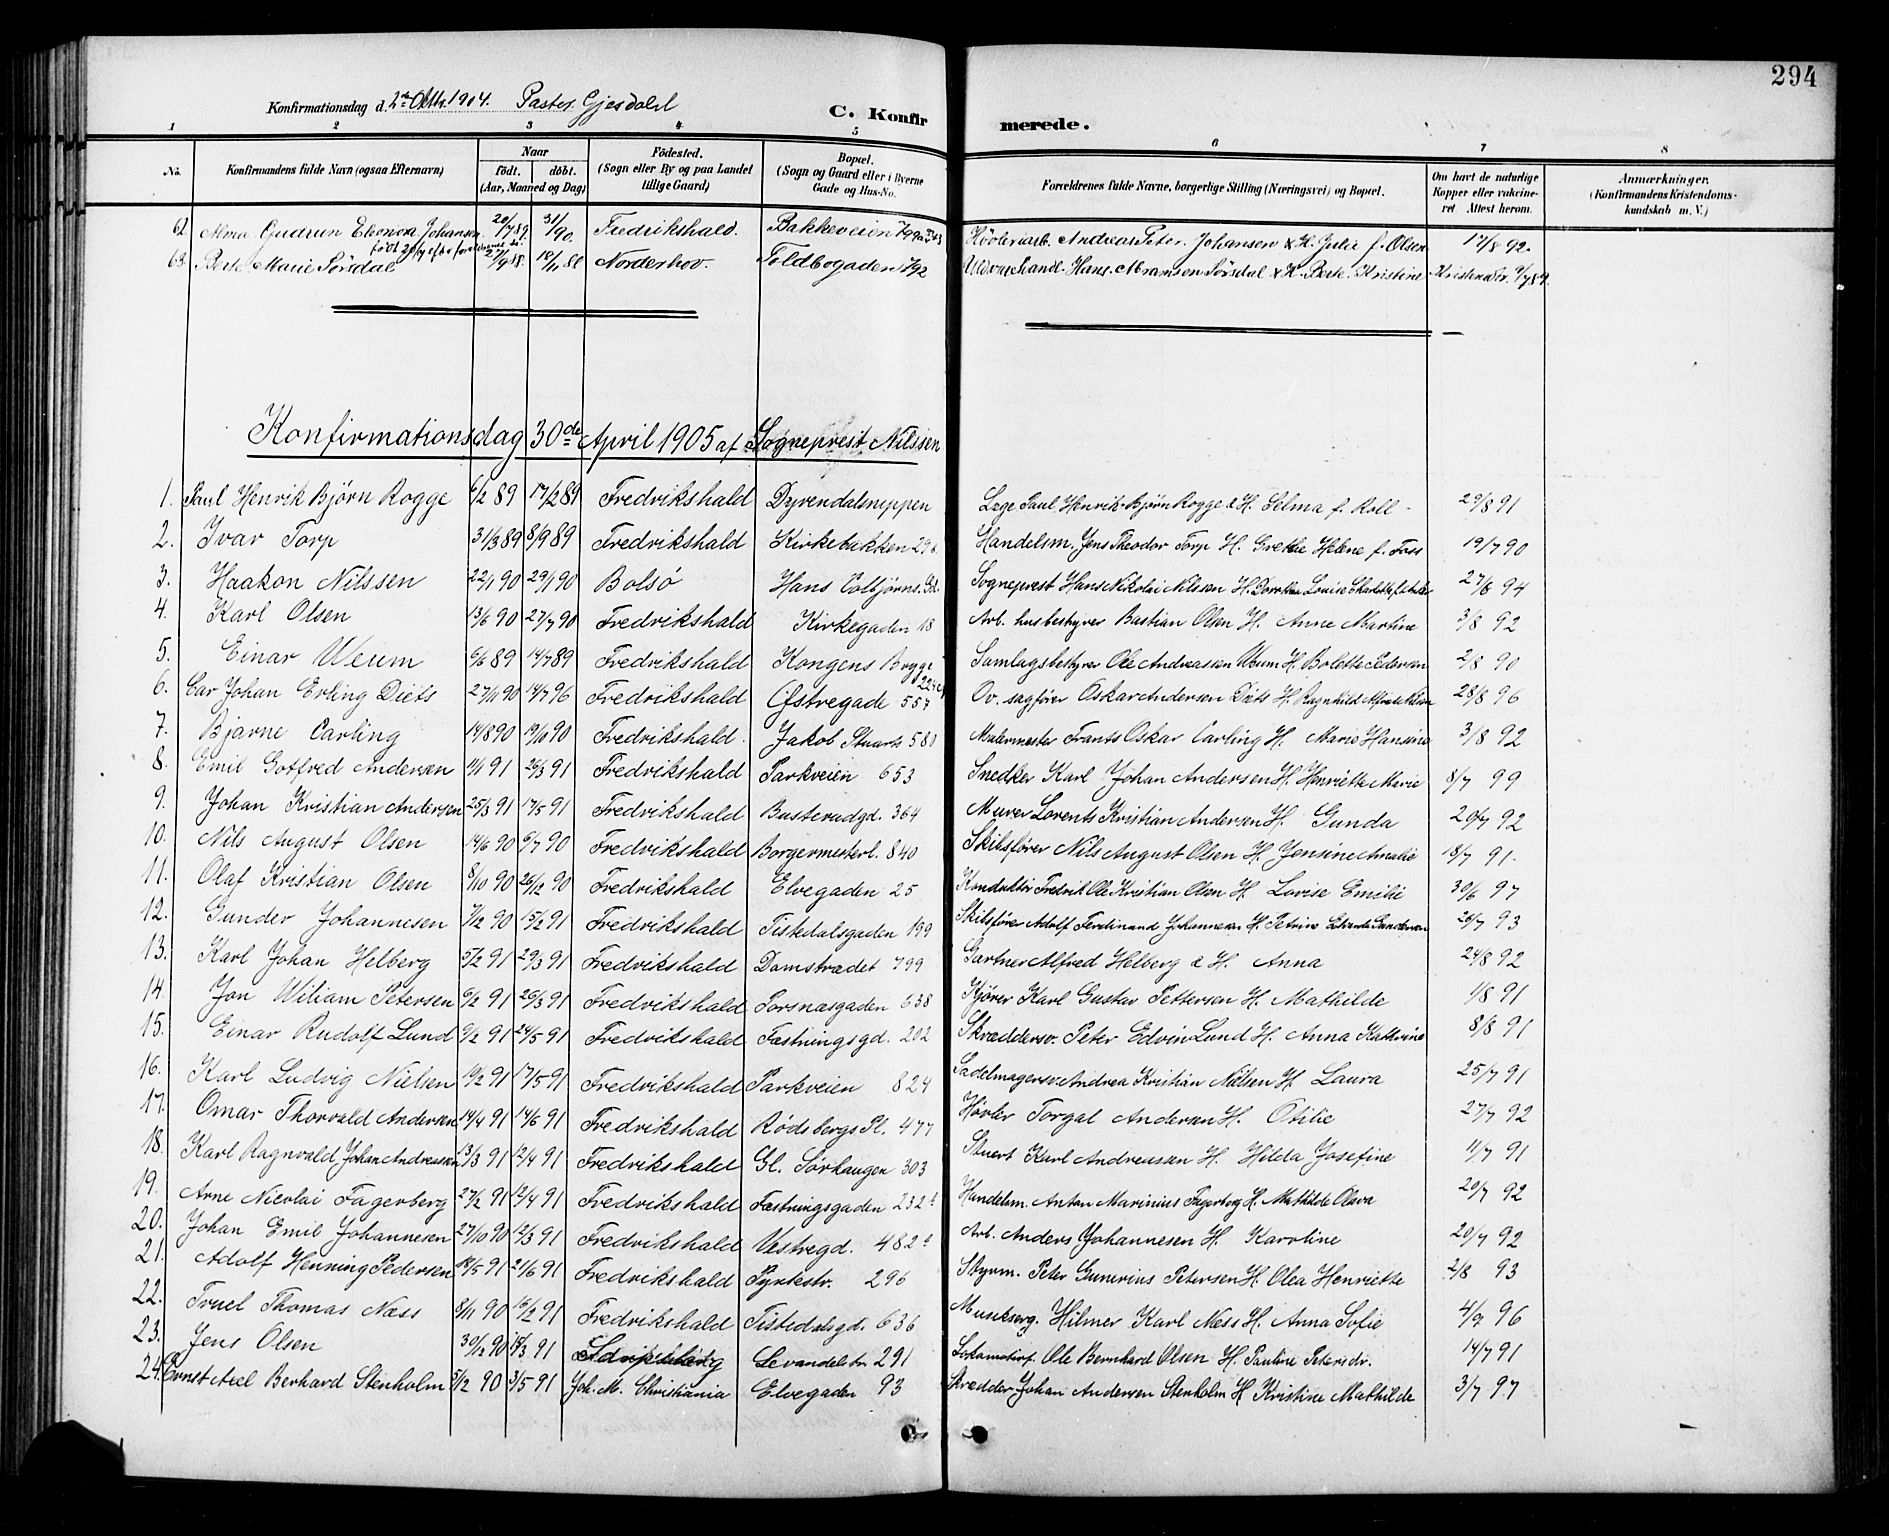 294
Konfirmationsdag d. 2den Oktbr. 1904. Pastor Gjesdahl
C. Konfirmerede.
1 2 3 4 5 6 7 8
No. Konfirmandens fulde Navn (ogsaa Efternavn) Naar født. døbt. (Aar, Maaned og Dag) Fødested. (Sogn eller By og paa Landet tillige Gaard) Bopæl. (Sogn og Gaard eller i Byerne Gade og Hus-No. Forældrenes fulde Navne, borgerlige Stilling (Næringsvei) og Bopæl. Om havt de naturlige Kopper eller vakcineret. Attest herom. Anmærkninger. (Konfirmandens Kristendomskundskab m. V.)
62 Alma Gudrun Eleonora Johansen. 20/7 89 31/ 90. Fredrikshald. Bakkeveien Høvleriarb. Andreas Peter Johansen & H. Julie f. Olsen 17/8 92.
63. Berte Marie Sørsdal 88. 88 Norderhov. Toldbogaden 792 Uldvarehandl. Hans Sørsdal & H. Berte Kristine
Konfirmationsdag 30de April 1905 af Sogneprest Nilssen
1. Paul Henrik Bjørn Rogge 6/2 89 17/2 89 Fredrikshald Dyrendalsneppen Læge Paul Henrik Bjørn Rogge & H. Selma f. Roll 29/8 91
2. Ivar Torp 31/3 89 8/9 89 Fredrikshald Kirkebakken 29 Handelsm. Jens Theodor Torp H. Grethe Helene f. Foss 19/7 90
3. Haakon Nilssen 22/1 90 29/1 90 Bolsø Hans Colbjørns. Gd. Sogneprest Hans Nikolai Nilssen H. Dorothea Louise Charlotte 27/8 94
4. Karl Olsen 13/6 90 27/7 90 Fredrikshald Kirkegaden 18 Arb. husbestyrer Bastian Olsen H. Anne Martine 3/8 92
5. Einar Ueum 6/6 89 14/7 89 Fredrikshald Kongens Brygge Samlagsbestyrer Ole Andreassen Ueum H. Bolette Pedersen 2/8 90
6. Car Johan Erling Diets 27/11 90 14/7 96 Fredrikshald Østregade 557 Ov. sagfører Oskar Andersen Diets H. Ragnhild 28/8 96
7. Bjarne Carling 14/8 90 19/10 90 Fredrikshald. Jakob Stuarts 580 Malermester Frants Oskar Carling H. Marie Hansine 3/8 92
8. Emil Gotfred Andersen 11/1 91 26/3 91 Fredrikshald Parkveien 653 Snedker Karl Johan Andersen H. Henriette Marie 8/7 99
9. Johan Kristian Andersen 25/3 91 17/5 91 Fredrikshald Busterudgd. 364 Murer Lorents Kristian Andersen H. Gunda 20/7 92
10. Nils August Olsen 14/6 90 6/7 90 Fredrikshald Borgermesterl. 840 Skibsfører Nils August Olsen H. Jensine Amalie 18/7 91.
11. Olaf Kristian Olsen 8/10 90 26/12 90 Fredrikshald Elvegaden 25 Konduktør Fredrik Ole Kristian Olsen H. Lovise Emilie 30/6 97
12. Gunder Johannesen 7/12 90 15/2 91 Fredrikshald Tistedalsgaden 199 Skibsfører Adolf Ferdinand Johannesen H. Petrine Gundersen 26/7 93
13. Karl Johan Helberg 5/2 91 29/3 91 Fredrikshald Damstrædet 799 Gartner Alfred Helberg & H. Anna 24/8 92
14. Jon Wiliam Petersen 6/2 91 26/3 91 Fredrikshald Porsnæsgaden 638 Kjører Karl Gustav Pettersen H. Mathilde 1/8 91
15. Einar Rudolf Lund 9/2 91 24/5 91 Fredrikshald Fæstningsgd. 202 Skræddersv. Peter Edvin Lund H. Anna Kathrine 8/8 91
16. Karl Ludvig Nielsen 19/2 91 17/5 91 Fredrikshald Parkveien 824 Sadelmagersv. Andrea Kristian Nielsen H. Laura 25/7 91
17. Omar Thorvald Andersen 14/4 91 14/6 91 Fredrikshald Rødsbergs Pl. 477 Høvler Torgal Andersen H. Otilie 27/7 92
18. Karl Ragnvald Johan Andreassen 13/3 91 12/4 91 Fredrikshald Gl. Sørhaugen 303 Stuert Karl Andreassen H. Hilda Josefine 11/7 91
19. Arne Nicolai Fagerberg 27/2 91 12/4 91 Fredrikshald Fæstningsgaden 232 Handelsm. Anton Marinius Fagerberg H. Mathilde Olava 20/7 92
20. Johan Emil Johannesen 27/10 90 12/3 91 Fredrikshald Vestregd. 482 Arb. Anders Johannesen H. Karoline 20/7 92
21. Adolf Henning Pedersen 18/5 91 21/6 91 Fredrikshald Pyntestr. 296 Styrm. Peter Gunerius Petersen H. Olea Henriette 2/8 93
22. Truel Thomas Næss 8/11 90 15/2 91 Fredrikshald Tistedalsgd. 636 Musikserg. Hilmer Karl Næss H. Anna Sofie 4/9 96
23. Jens Olsen 30/12 90 15/3 91 Levandelstr. 291 Lokomotivf. Ole Bernhard Olsen H. Pauline Petersdr. 14/7 91
24. Ernst Axel Berhard Stenholm 5/12 90 3/5 91 Joh. M. Christiania Elvegaden 93 Skredder Johan Andersen Stenholm H Kristine Mathilde 3/7 97